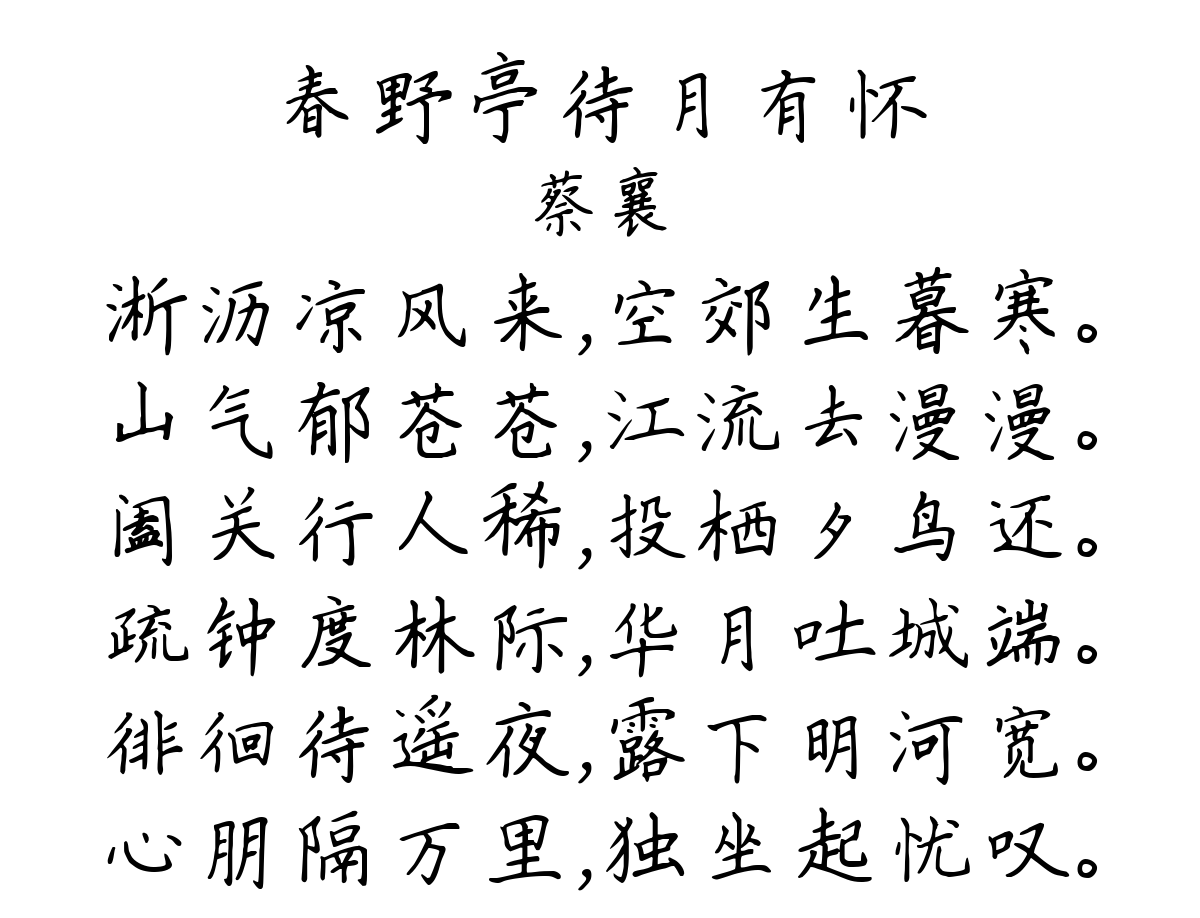 春野亭待月有怀
蔡襄
淅沥凉风来,空郊生暮寒。
山气郁苍苍,江流去漫漫。
阖关行人稀,投栖夕鸟还。
疏钟度林际,华月吐城端。
徘徊待遥夜,露下明河宽。
心朋隔万里,独坐起忧叹。